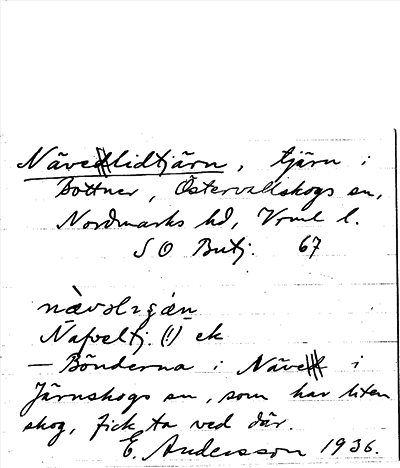 Nävelidtjärn, tjärn i
Bottner, Östervallskogs sn,
Nordmarks hd, Vrml l.
S O Butj. 67
Nafveltj. (!) ek
— Bönderna i Näve i
Järnskogs sn, som har liten
skog, fick ta ved där.
E. Andersson 1936.